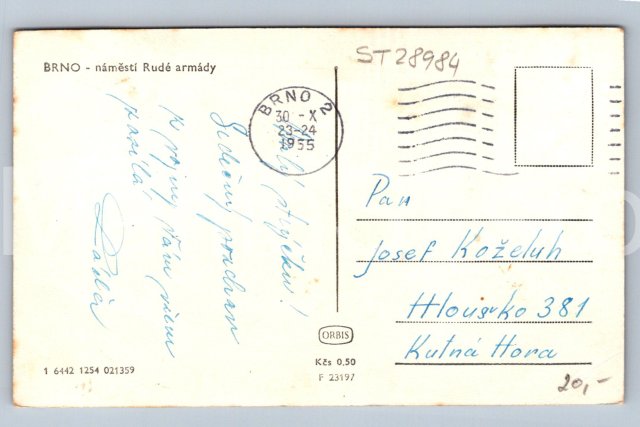 BRNO - náměstí Rudé armády
ST28984
BRNO 2
30 -X
23-24
1955
Milý strýčku!
Srdečný pozdrav
z vojny Vám všem
posílá
Pan
Josef Koželuh
Hlouško 381
Kutná Hora
ORBIS
Kčs 0,50
F 23197
1 6442 1254 021359
20,-